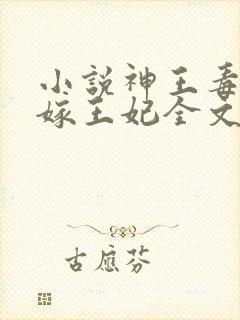 小説神王毒
嫁王妃全文
古應芬